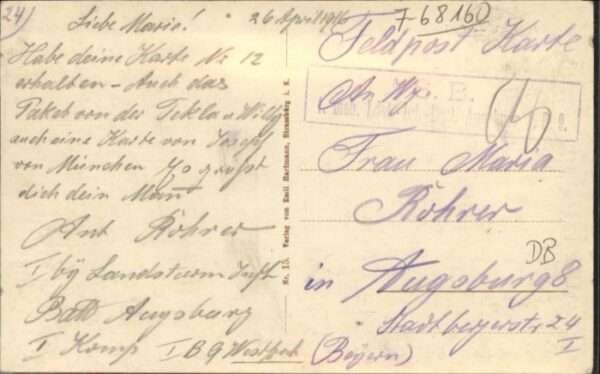 24)
Liebe Marie! 26 April 1916
Habe deine Karte Nr 12
erhalten – Auch das
Paket von der Tekla u Willy
auch eine Karte von Josef
von München grüßt
dich dein Mann
Ant Röhrer
I bÿ Landsturm Inft
Batt Augsburg
I Komp I B 9 Westpark
Nr. Verlag von Emil Hartmann, Strassburg i. E.
7-68160
Feldpost Karte
An
B.
Frau Maria
Röhrer
DB
in Augsburg 8
Stadtbergerstr 24
I
(Bayern)